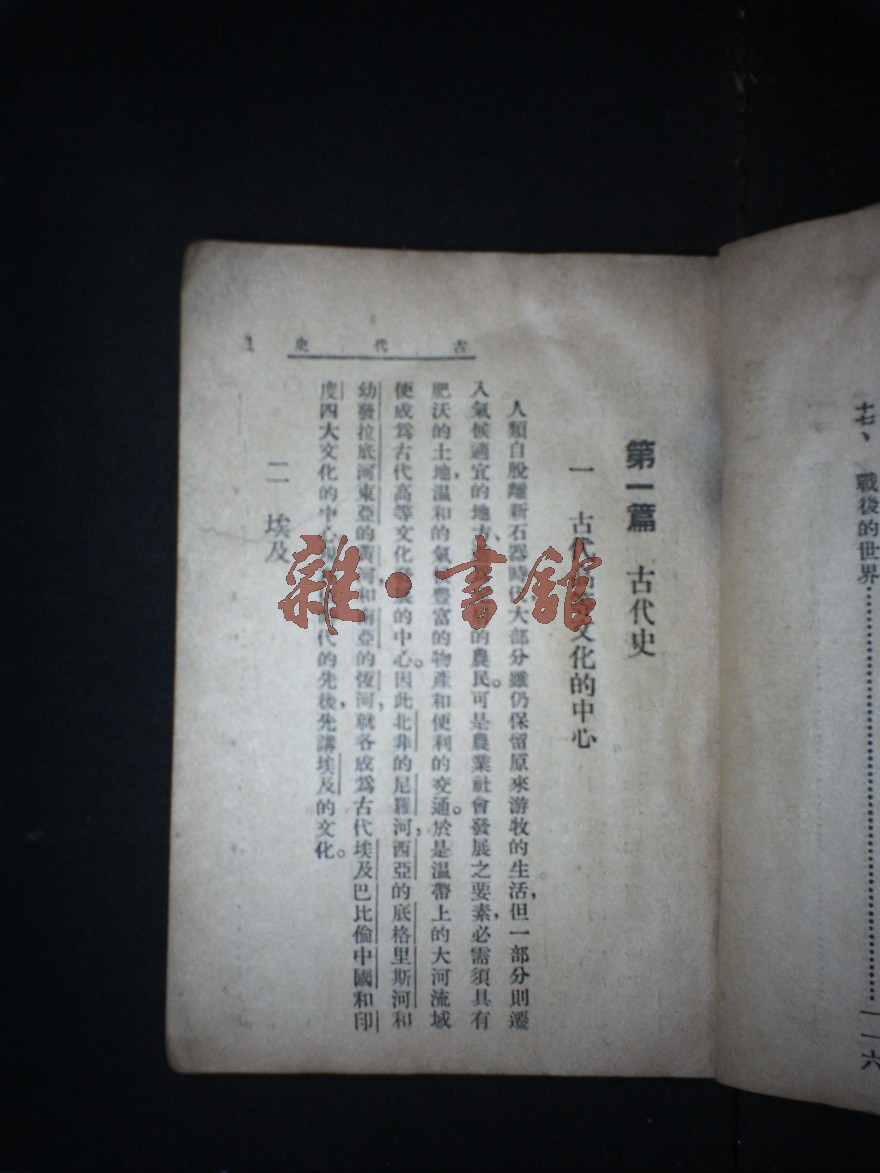 十七、戰後的世界……………………一一六
第一篇 古代史
一 古代高等文化的中心
人類自脫離新石器時代，大部分雖仍保留原來游牧的生活，但一部分則遷
入氣候適宜的地方，的農民。可是農業社會發展之要素，必需須具有
肥沃的土地，温和的氣候豐富的物產和便利的交通。於是温帶上的大河流域
便成爲古代高等文化發展的中心。因此北非的尼羅河，西亞的底格里斯河和
幼發拉底河東亞的黃河和南亞的恆河，就各成爲古代埃及巴比倫中國和印
度四大文化的中心代的先後，先講埃及的文化。
二 埃及
古代史
1
雜·書館